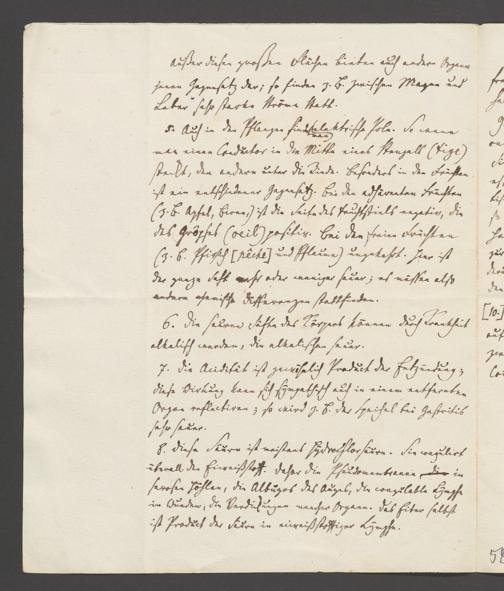 Außer diesen großen Flächen bieten auch andere Organe
jenen Gegensatz dar; so finden z. B. zwischen Magen und
Leber sehr starke Ströme statt.
5. Auch in den Pflanzen sind elektrische Pole. So wenn
man einen Conductor in die Mitte eines Stengels (tige)
steckt, den andern unter die Rinde. Besonders in den Früchten
ist ein entschiedener Gegensatz. Bei den adhärenten Früchten
(z. B. Apfel, Birne,) ist die Seite des Fruchtstiels negativ, die
des Gröpses (oeil) positiv. Bei den freien Früchten
(z. B. Pfirsich [pêche] und Pflaume) umgekehrt. Hier ist
der ganze Saft mehr oder weniger sauer; es müssen also
andere chemische Differenzen stattfinden.
6. Die sauren Säfte des Körpers können durch Krankheit
alkalisch werden, die alkalischen sauer.
7. Die Acidität ist gewöhnlich Product der Entzündung;
diese Wirkung kann sich sympathisch auch in einem entfernten
Organ reflectiren; so wird z. B. der Speichel bei Gastritis
sehr sauer.
8. Diese Säure ist meistens Hydrochlorsäure. Sie coagulirt
überall den Eiweißstoff. Daher die Pseudomembranen in
serosen Höhlen, die Albugos des Auges, die coagulable Lymphe
in Wunden, die Verdickungen mancher Organe. Das Eiter selbst
ist Product der Säure in eiweißstoffiger Lymphe.
[10.]